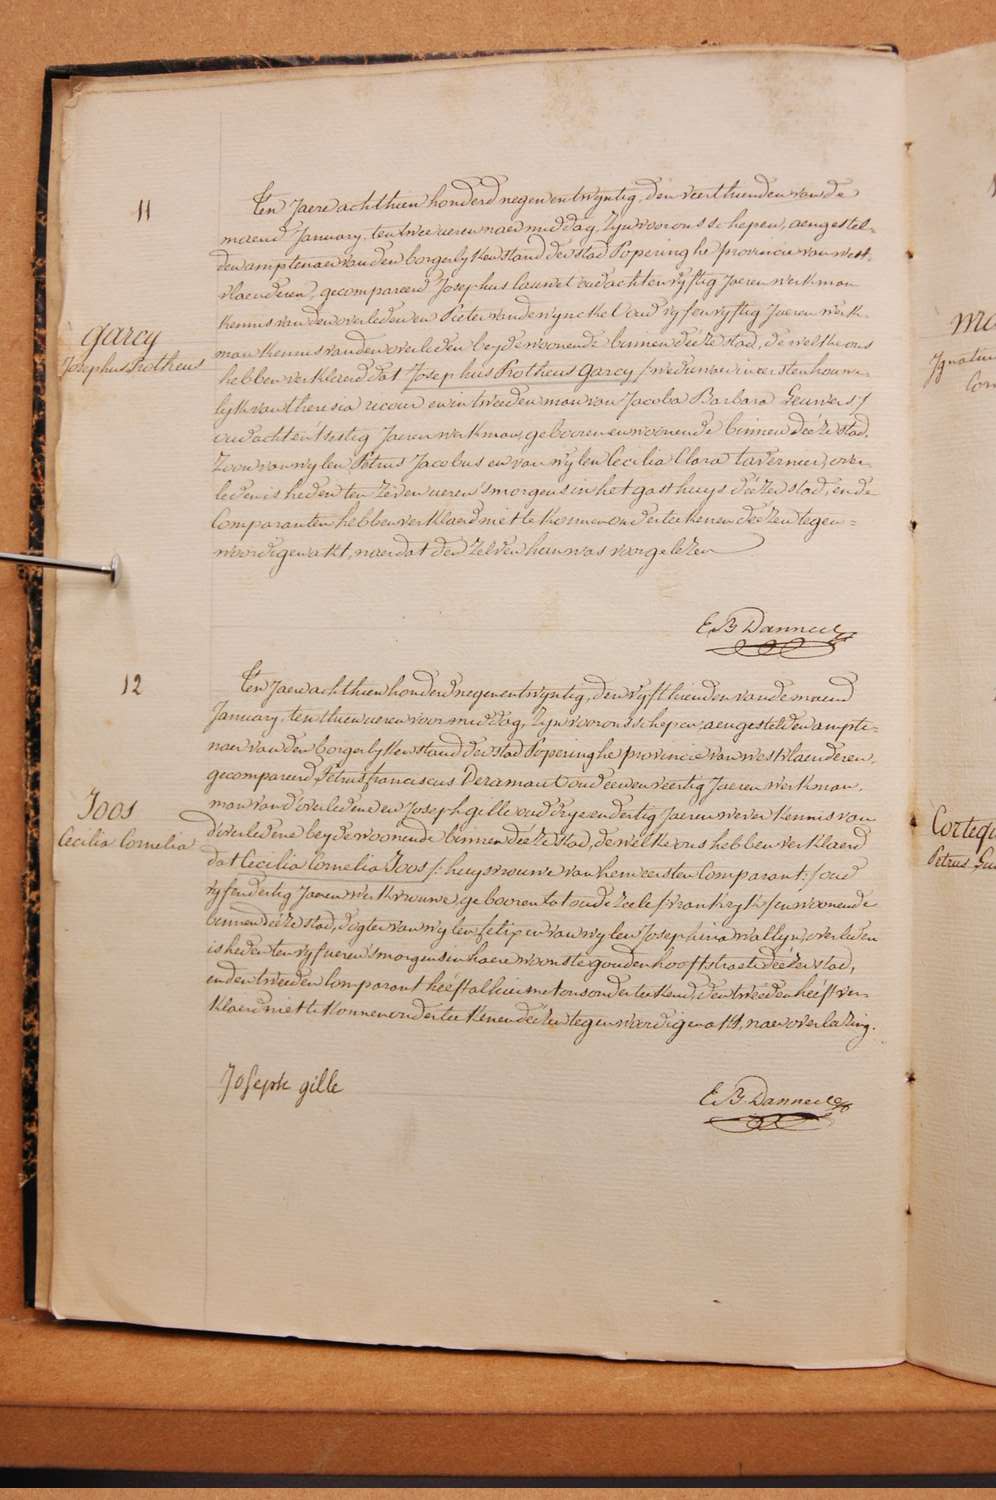 11
Ten Jaere achthien honderd negen en twyntig, den veerthienden van de
maend January, ten twee ueren naer middag, Zyn voor ons schepen, aengestel-
den amptenaer van den borgerlyken stand der stad Poperinghe provincie van west-
vlaenderen, gecompareerd Josephus lauwet oud acht en vyftig Jaeren werkman
kennis van den overledenen en Pieter vandewynckel oud vyf en vyftig Jaeren werk-
man kennis van den overleden beyde woonende binnen deéze stad, de welke ons
garcy
Josephus Protheus
hebben verklaerd dat Josephus Protheus Garcy /: weduwaer in eersten houwe-
lyk van theresia ricour en en tweeden man van Jacoba Barbara Geuwers :/
oud acht en t'sestig Jaeren werkman, gebooren en woonende binnen deéze stad,
Zoon van wylen Petrus Jacobus en van wylen Cecilia Clara tavernier, over-
leden is heden ten zeven ueren 'smorgens in het gasthuys deézer stad, en de
Comparanten hebben verklaerd niet te konnen onderteekenen deézen tegen=
woordigen akt, naer dat den zelven hun was voorgelezen
E. B. Danneel
12
Ten Jaere achthien honderd negen en twyntig, den vyfthienden van de maend
January, ten thien ueren voor middag, Zyn voor ons schepen, aengestelden ampte=
naer van den borgerlyken stand der stad Poperinghe provincie van westvlaenderen,
gecompareerd, Petrus franciscus Deramaut oud een en veertig Jaeren werkman,
Joos
Cecilia Cornelia
man van d'overledene en Joseph gille oud drye en dertig Jaeren wever kennis van
d'overledene beyde woonende binnen deéze stad, de welke ons hebben verklaerd
dat Cecilia Cornelia Joos /: huysvrouwe van den eersten Comparant :/ oud
vyf en dertig Jaeren werkvrouwe, gebooren tot oudezeele /vrankryk/ en woonende
binnen deéze stad, dogter van wylen felix en van wylen Josephina wallyn, overleden
is heden ten vyf ueren 'smorgens in haere woonste gouden hooftstraete deézer stad,
en den tweeden Comparant heéft alhier met ons onderteekend, den tweeden heéft ver-
klaerd niet te konnen onderteekenen deézen tegenwoordigen akt, naer voorlezing.
Joseph gille
E. B. Danneel
Ignatius
Cor
Petrus